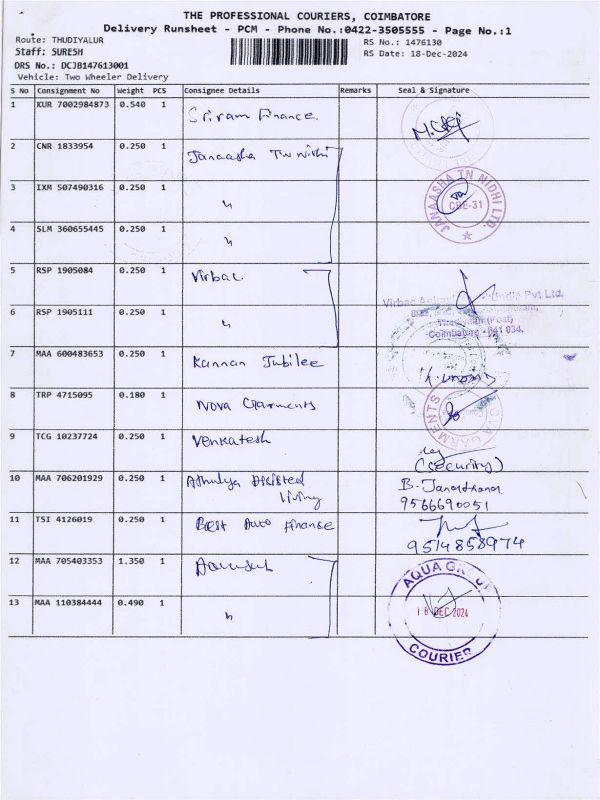 THE PROFESSIONAL COURIERS, COIMBATORE
Delivery Runsheet - PCM - Phone No.:0422-3505555 - Page No.:1
Route: THUDIYALUR
RS No.: 1476130
Staff: SURESH
RS Date: 18-Dec-2024
DRS No.: DCJB147613001
Vehicle: Two Wheeler Delivery
S No Consignment No Weight PCS Consignee Details Remarks Seal & Signature
1 KUR 7002984873 0.540 1 Sriram Finance
2 CNR 1833954 0.250 1 Janaasha Tn Nidhi
3 IXM 507490316 0.250 1 "
JANAASHA TN NIDHI LTD. CBE-31
4 SLM 360655445 0.250 1 "
5 RSP 1905084 0.250 1 Virbac
Virbac India Pvt Ltd,
6 RSP 1905111 0.250 1 "
(Post)
Coimbatore - 641 034.
7 MAA 600483653 0.250 1 Kannan Jubilee
8 TRP 4715095 0.180 1 Nova Garments
NOVA GARMENTS
9 TCG 10237724 0.250 1 Venkatesh
(Security)
10 MAA 706201929 0.250 1 Athulya Assisted Living
B. Janardhanan
9566690051
11 TSI 4126019 0.250 1 Best Auto Finance
9514858974
12 MAA 705403353 1.350 1
AQUA GROUP
13 MAA 110384444 0.490 1 "
18 DEC 2024
COURIER